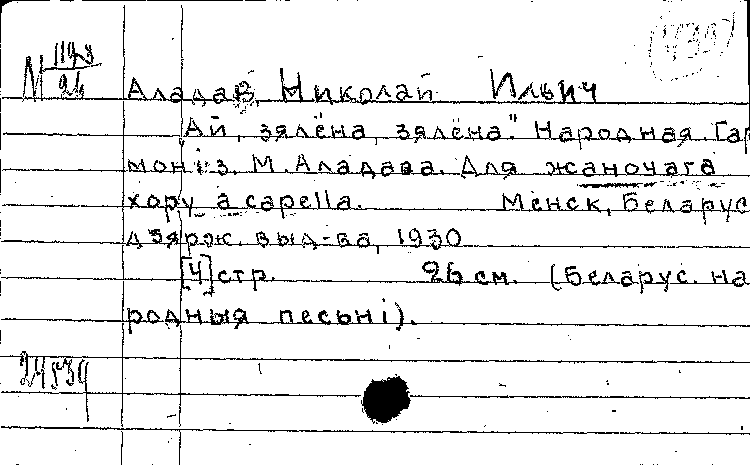 (439)
М 119з
26
Аладав, Николай Ильич
"Ай, зялёна, зялёна." Народная. Гар
моніз. М. Аладава. Для жаночага
хору a capella. Менск, Беларус
дзярж. выд-ва, 1930
[4] стр. 26 см. (Беларус. на
родныя песьні).
24539